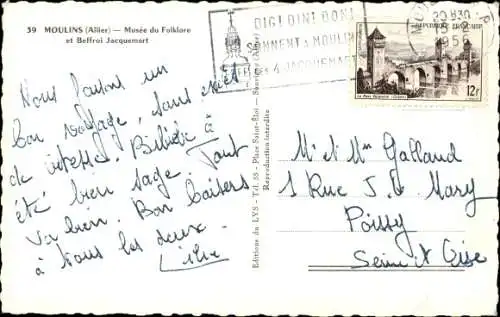 39 MOULINS (Allier) — Musée du Folklore
et Beffroi Jacquemart
DIGI DINI DON!
SONNENT à MOULINS
LES 4 JACQUEMART
20H30
15
1956
REPUBLIQUE FRANÇAISE
12F
Nous faisons un
bon voyage, sans excès
de vitesse. Bibiche à
été bien sage. Tout
va bien. Bon baisers
à vous les deux.
Editions du LYS - Tél. 55 - Place Saint-Eloi - Souvigny (Allier)
Reproduction interdite
Mr et Mme Galland
1 Rue J. Mary
Poissy
Seine et Oise